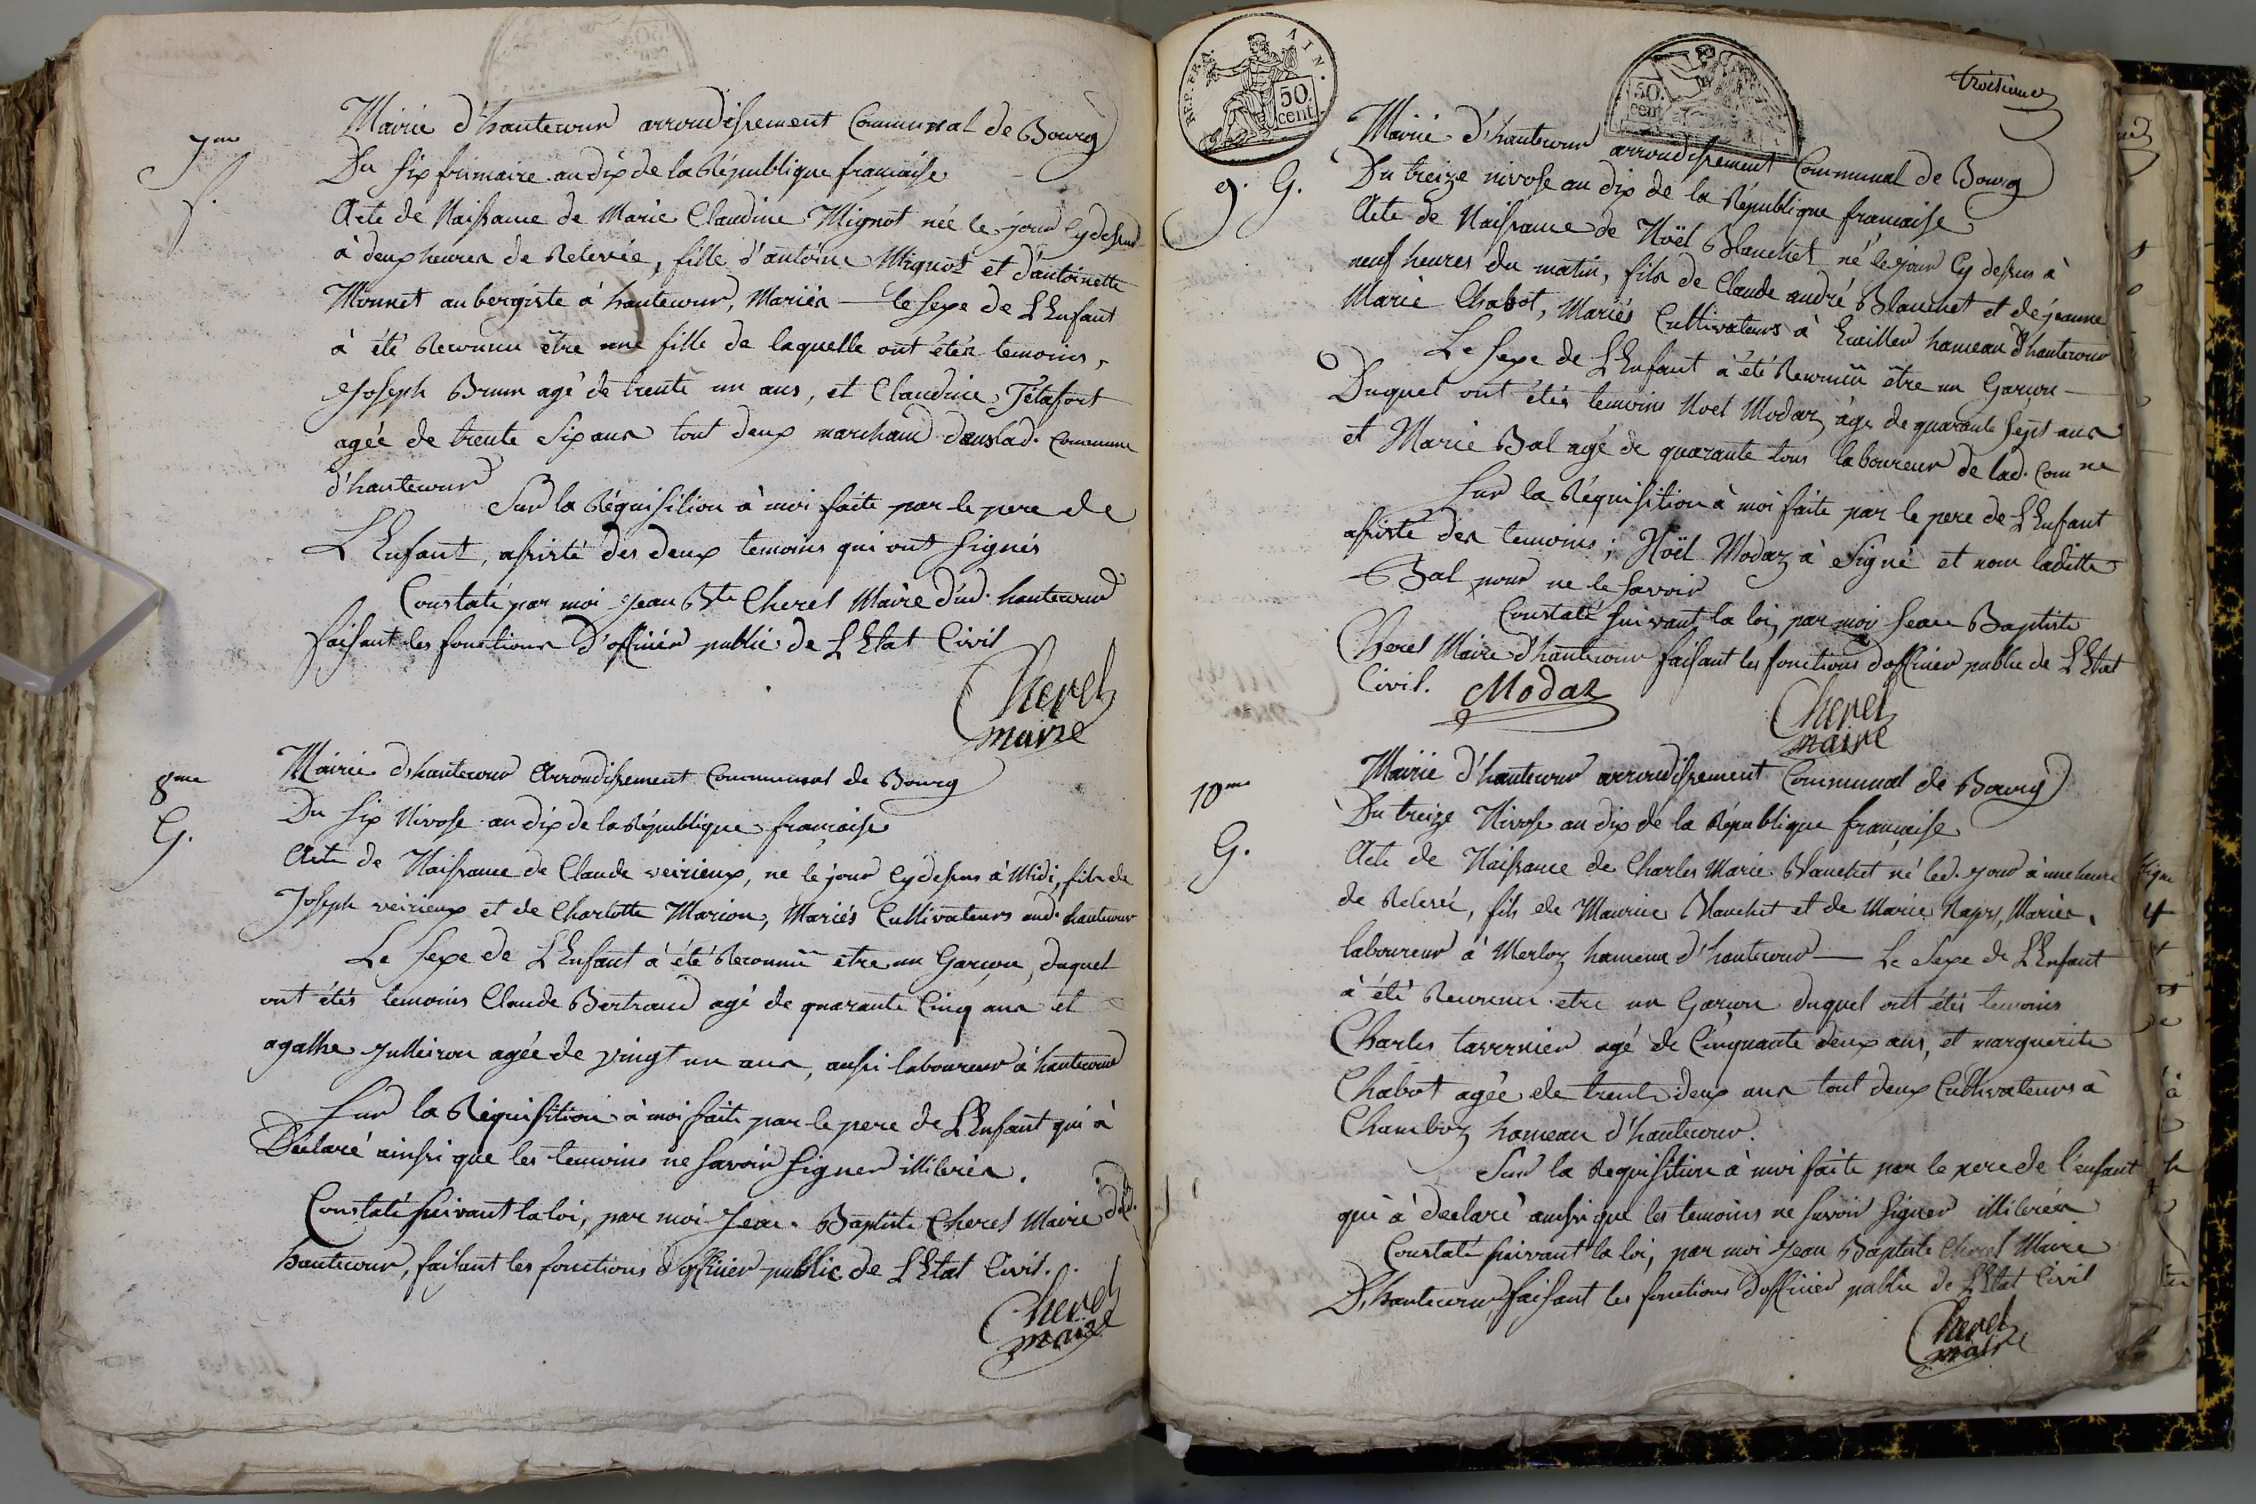 7me
f.
Mairie d'hautecour arrondissement Communal de Bourg
Du six frimaire an dix de la République française
Acte de Naissance de Marie Claudine Mignot née le jour Cy dessus
à deux heures de Relevée, fille d'antoine Mignot et d'antoinette
Monnet aubergiste à hautecour, Mariés — le sexe de L'Enfant
à été Reconnu être une fille de laquelle ont étés temoins,
Joseph Brun agé de trente un ans, et Claudine Tétafort
agée de trente six ans tout deux marchand dans lad. Commune
d'hautecour
Sur la Réquisition à moi faite par le pere de
L'Enfant, assisté des deux temoins qui ont signés
Constaté par moi Jean Bte Cherel Maire dud. hautecour
faisant les fonctions D'officier public de L'Etat Civil
Cherel
maire
8me
G.
Mairie d'hautecour Arrondissement Communal de Bourg
Du six Nivose an dix de la République française
Acte de Naissance de Claude veirieux, né le jour Cy dessus à Midi, fils de
Joseph veirieux et de Charlotte Marion, Mariés Cultivateurs aud. hautecour
Le sexe de L'Enfant à été Reconnû etre un Garçon, duquel
ont étés temoins Claude Bertrand agé de quarante Cinq ans et
agathe Julleiron agée de vingt un ans, aussi laboureur à hautecour
Sur la Réquisition à moi faite par le pere de L'Enfant qui à
Déclaré ainsi que les temoins ne savoir signer illiterés.
Constaté suivant la loi, par moi Jean Baptiste Cherel Maire dud.
hautecour, faisant les fonctions d'officier public de L'Etat Civil.
Cherel
maire
REP. FRA. AIN.
50 cent
50. cent
troisieme
9. G.
Mairie d'hautecour arrondissement Communal de Bourg
Du treize nivose an dix de la République française
Acte de Naissance de Noël Blanchet né le jour Cy dessus à
neuf heures du matin, fils de Claude andré Blanchet et de jeanne
Marie Chabot, Mariés Cultivateurs à Cueiller hameau d'hautecour
Le sexe de L'Enfant à été Reconnû être un Garcon —
Duquel ont étés temoins Noel Modaz âgé de quarante sept ans
et Marie Bal agé de quarante tous laboureur de lad. Comne
Sur la Réquisition à moi faite par le pere de L'Enfant
assisté des temoins ; Noël Modaz à signé et non laditte
Bal pour ne le savoir
Constaté suivant la loi, par moi Jean Baptiste
Cherel Maire d'hautecour faisant les fonctions d'officier public de L'Etat
Civil.
Modaz
Cherel
maire
10me
G.
Mairie d'hautecour arrondissement Communal de Bourg
Du treize Nivose an dix de la République française
Acte de Naissance de Charles Marie Blanchet né led. jour à une heure
de Relevé, fils de Maurice Blanchet et de Marie Mariés,
laboureur à Merloz hameau d'hautecour — Le Sexe de L'Enfant
à été Reconnu etre un Garcon duquel ont étés temoins
Charles tavernier agé de Cinquante deux ans, et marguerite
Chabot agée de trente deux ans tout deux Cultivateurs à
Chamboz hameau d'hautecour.
Sur la Requisition à moi faite par le pere de l'enfant
qui à declaré ainsi que les temoins ne savoir signer illiterés
Constaté suivant la loi, par moi Jean Baptiste Cherel Maire
D'hautecour faisant les fonctions d'officier public de L'Etat Civil
Cherel
maire